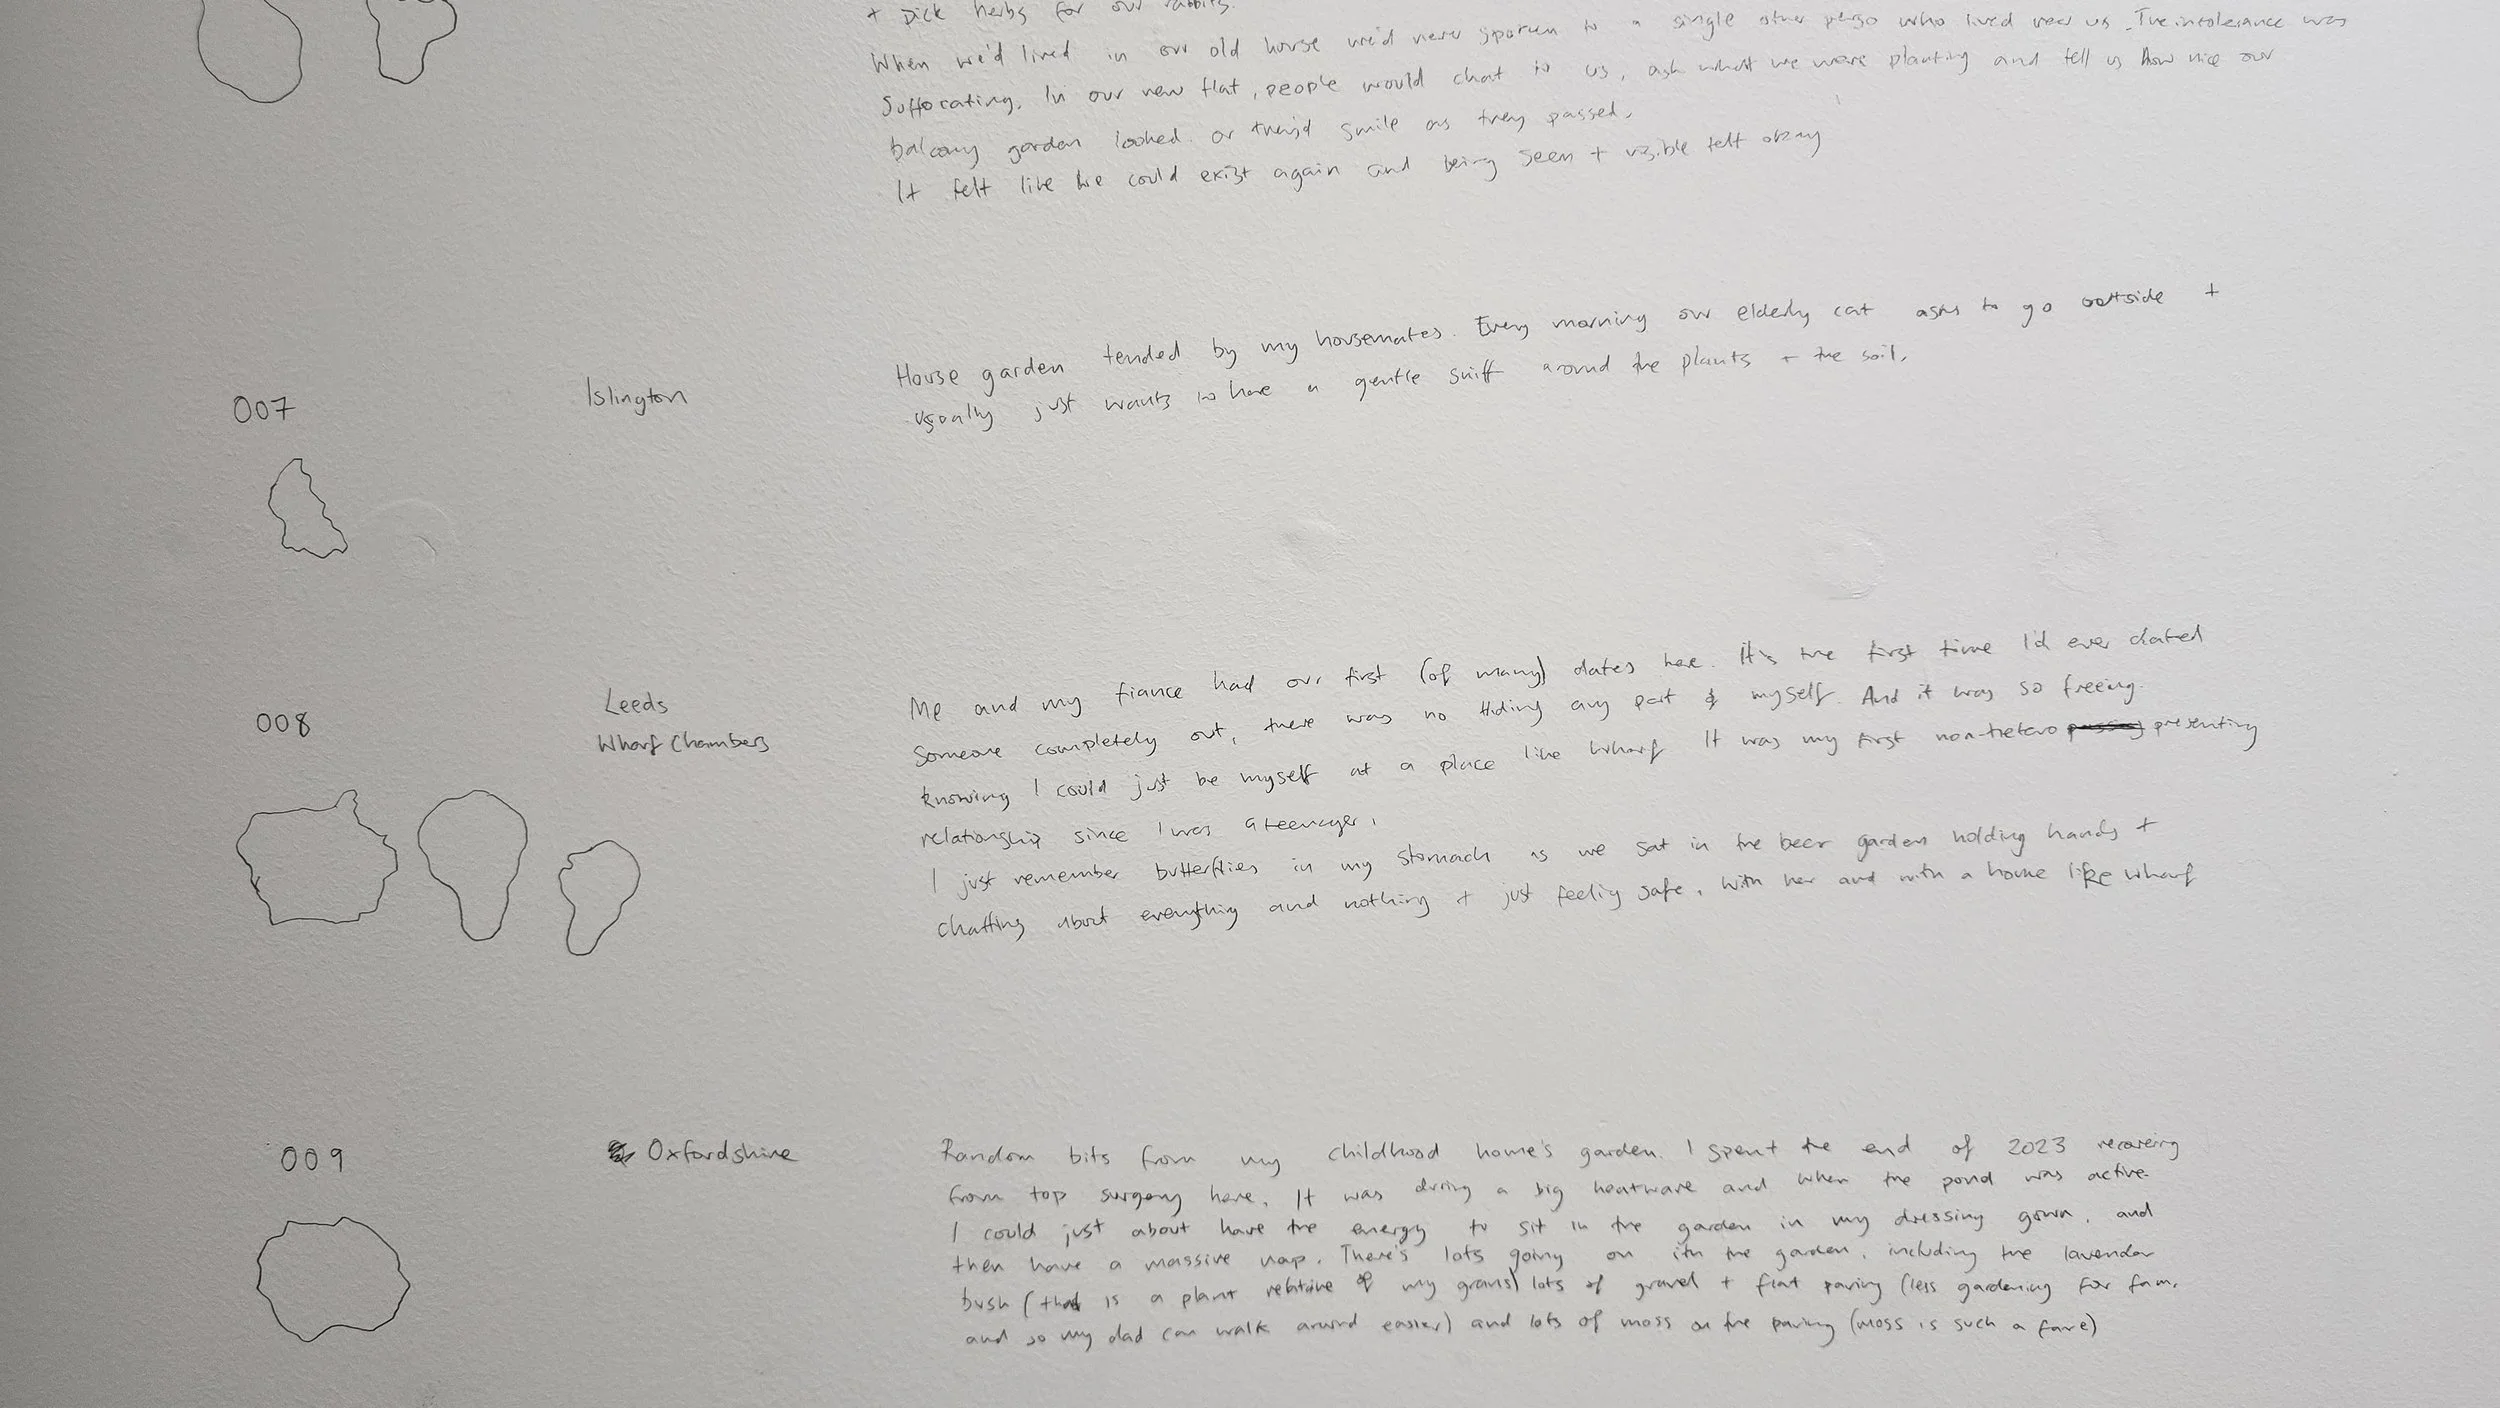 + pick herbs for our rabbits.
When we'd lived in our old house we'd never spoken to a single other perso who lived near us. The intolerance was
suffocating. In our new flat, people would chat to us, ask what we were planting and tell us how nice our
balcony garden looked. or they'd smile as they passed.
It felt like we could exist again and being seen + visible felt okay
007
Islington
House garden tended by my housemates. Every morning our elderly cat asks to go outside +
usually just wants to have a gentle sniff around the plants + the soil.
008
Leeds
Wharf Chambers
Me and my fiance had our first (of many) dates here. It's the first time I'd ever dated
someone completely out, there was no hiding any part of myself. And it was so freeing
knowing I could just be myself at a place like Wharf It was my first non-hetero passing presenting
relationship since I was a teenager.
I just remember butterflies in my stomach as we sat in the beer garden holding hands +
chatting about everything and nothing + just feeling safe. With her and with a home like Wharf
009
Oxfordshire
Random bits from my childhood home's garden. I spent the end of 2023 recovering
from top surgery here. It was during a big heatwave and when the pond was active.
I could just about have the energy to sit in the garden in my dressing gown, and
then have a massive nap. There's lots going on in the garden, including the lavender
bush (that is a plant relative of my grans) lots of gravel + flat paving (less gardening for fam.
and so my dad can walk around easier) and lots of moss on the paving (moss is such a fave)